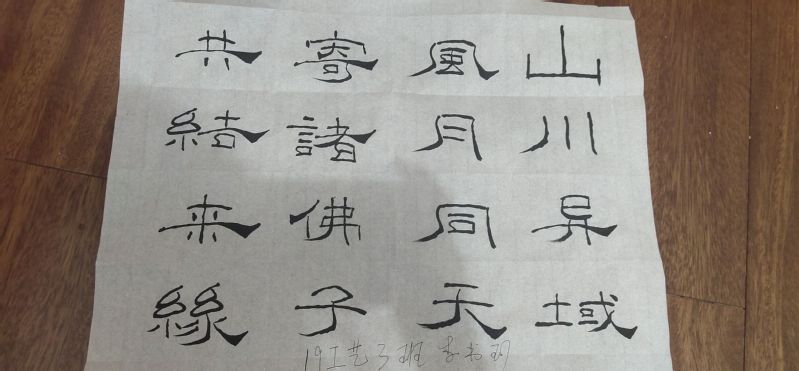 山川异域
風月同天
寄諸佛子
共結来緣
19工艺3班 李书玥